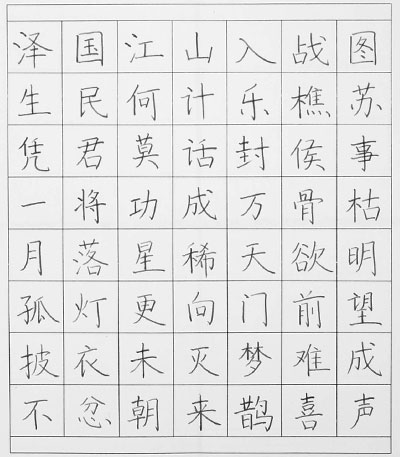 泽国江山入战图
生民何计乐樵苏
凭君莫话封侯事
一将功成万骨枯
月落星稀天欲明
孤灯更向门前望
披衣未灭梦难成
不忿朝来鹊喜声